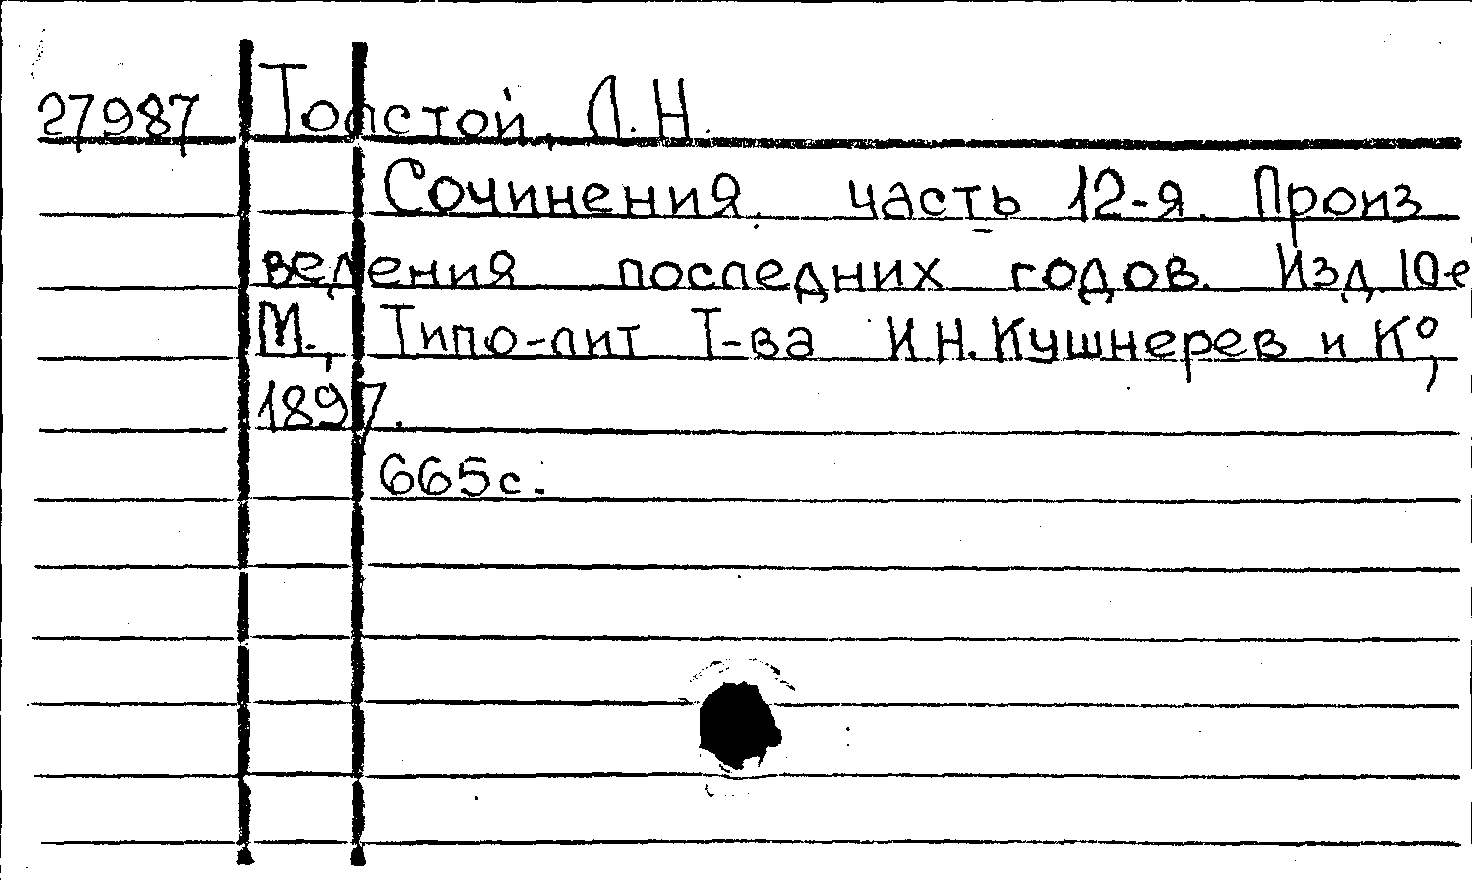 27987 Толстой, Л.Н.
Сочинения. часть 12-я. Произ
ведения последних годов. Изд. 10-е
М., Типо-лит Т-ва И.Н.Кушнерев и К°,
1897.
665с.